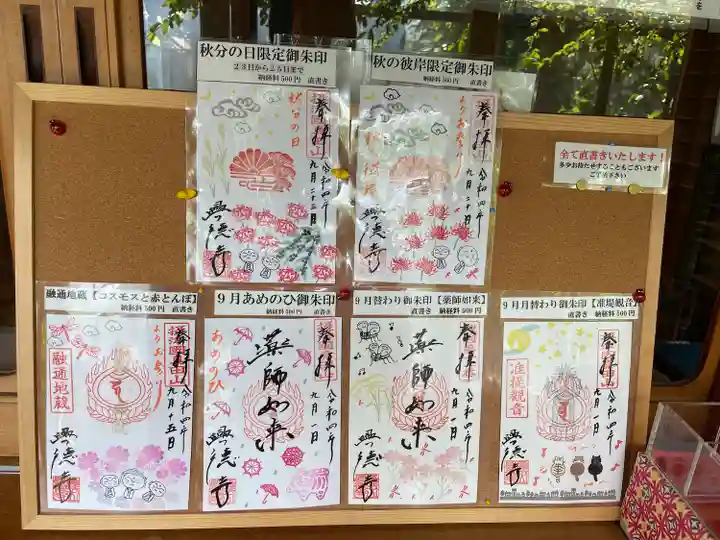 秋分の日限定御朱印
23日から25日まで
納経料500円 直書き
奉拝
秋分の日
令和四年
九月二十三日
興德寺
秋の彼岸限定御朱印
納経料500円 直書き
奉拝
よりお参り
令和四年
九月二十日
興德寺
全て直書きいたします!
多少お待たせすることもございます
ご了承下さい
融通地蔵【コスモスと赤とんぼ】
納経料500円 直書き
奉拝
よりお参り
融通地蔵
令和四年
九月十五日
興德寺
9月あめのひ御朱印
納経料500円 直書き
奉拝
あめのひ
薬師如来
令和四年
九月一日
興德寺
9月替わり御朱印【薬師如来】
直書き 納経料500円
奉拝
薬師如来
令和四年
九月一日
興德寺
9月月替わり御朱印【准堤観音】
直書き 納経料500円
奉拝
准堤観音
令和四年
九月一日
興德寺